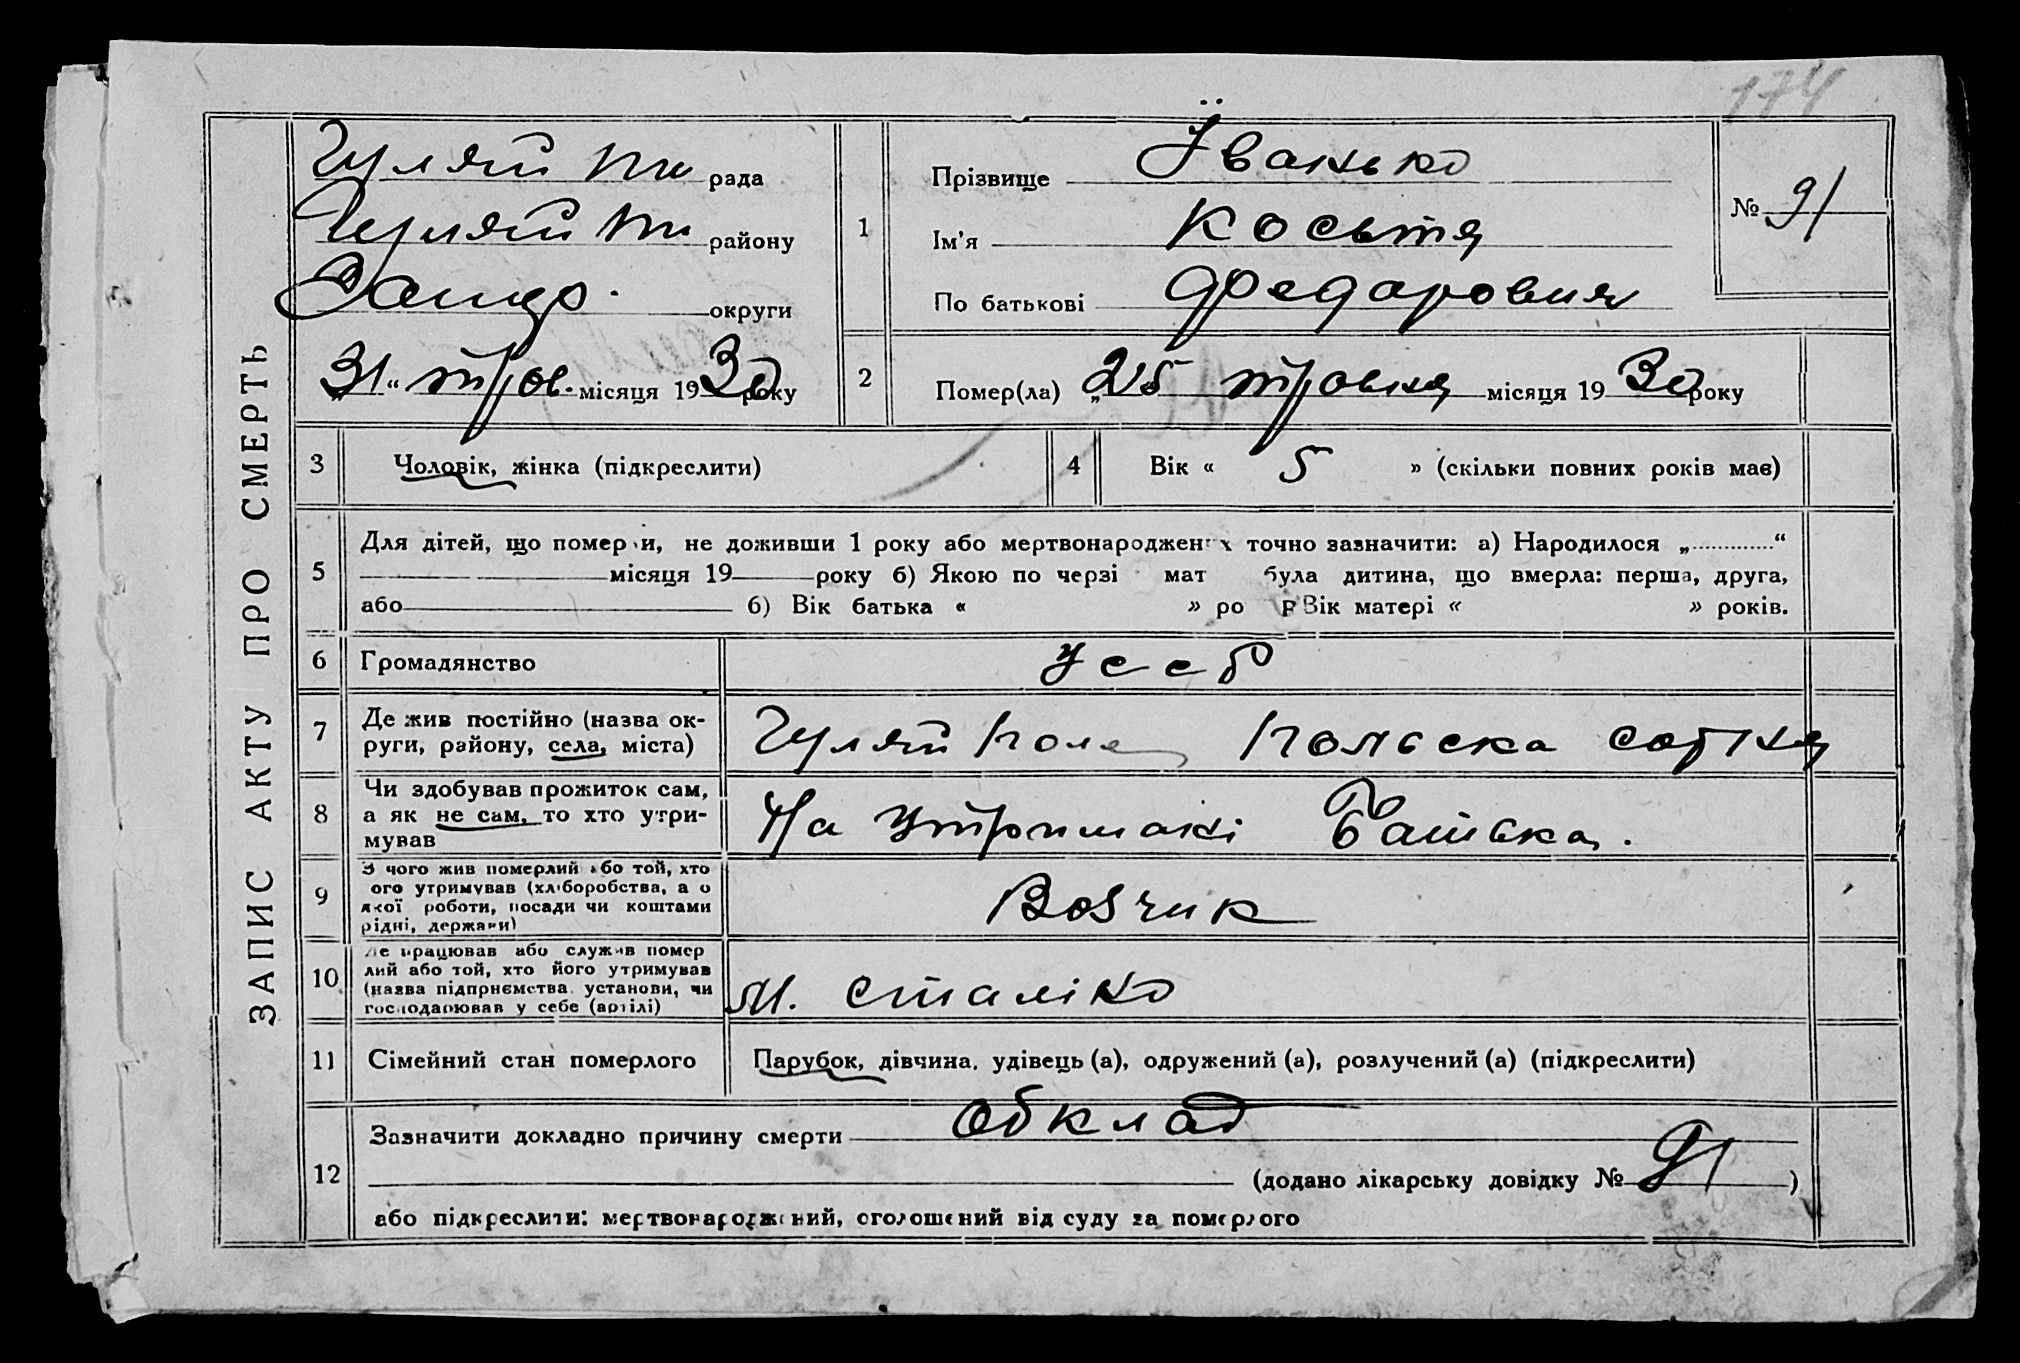 174
ЗАПИС АКТУ ПРО СМЕРТЬ
Гуляй рада
Гуляй району
округи
„31“ трав. місяця 1930 року
1
Прізвище Іванько
Ім'я Косьтя
По батькові Федаровия
№ 91
2
Помер(ла) „25 тровня місяця 1930 року
3
Чоловік, жінка (підкреслити)
4
Вік « 5 » (скільки повних років має)
5
Для дітей, що померли, не доживши 1 року або мертвонароджених точно зазначити: а) Народилося „ “
місяця 19 року б) Якою по черзі мат була дитина, що вмерла: перша, друга,
або б) Вік батька « » ро Вік матері « » років.
6
Громадянство
Уссб
7
Де жив постійно (назва ок-
руги, району, села, міста)
Гуляй Поле Польска сотня
8
Чи здобував прожиток сам,
а як не сам, то хто утри-
мував
На Утримані Батька.
9
З чого жив померлий або той, хто
ого утримував (хліборобства, а о
якої роботи, посади чи коштами
рідні, держави)
Возчик
10
Де працював або служив помер
лий або той, хто його утримував
(назва підприємства, установи, чи
господарював у себе (артілі)
М. Сталіно
11
Сімейний стан померлого
Парубок, дівчина, удівець (а), одружений (а), розлучений (а) (підкреслити)
12
Зазначити докладно причину смерти Обклад
(додано лікарську довідку № 91 )
або підкреслити: мертвонароджений, оголошений від суду за померлого